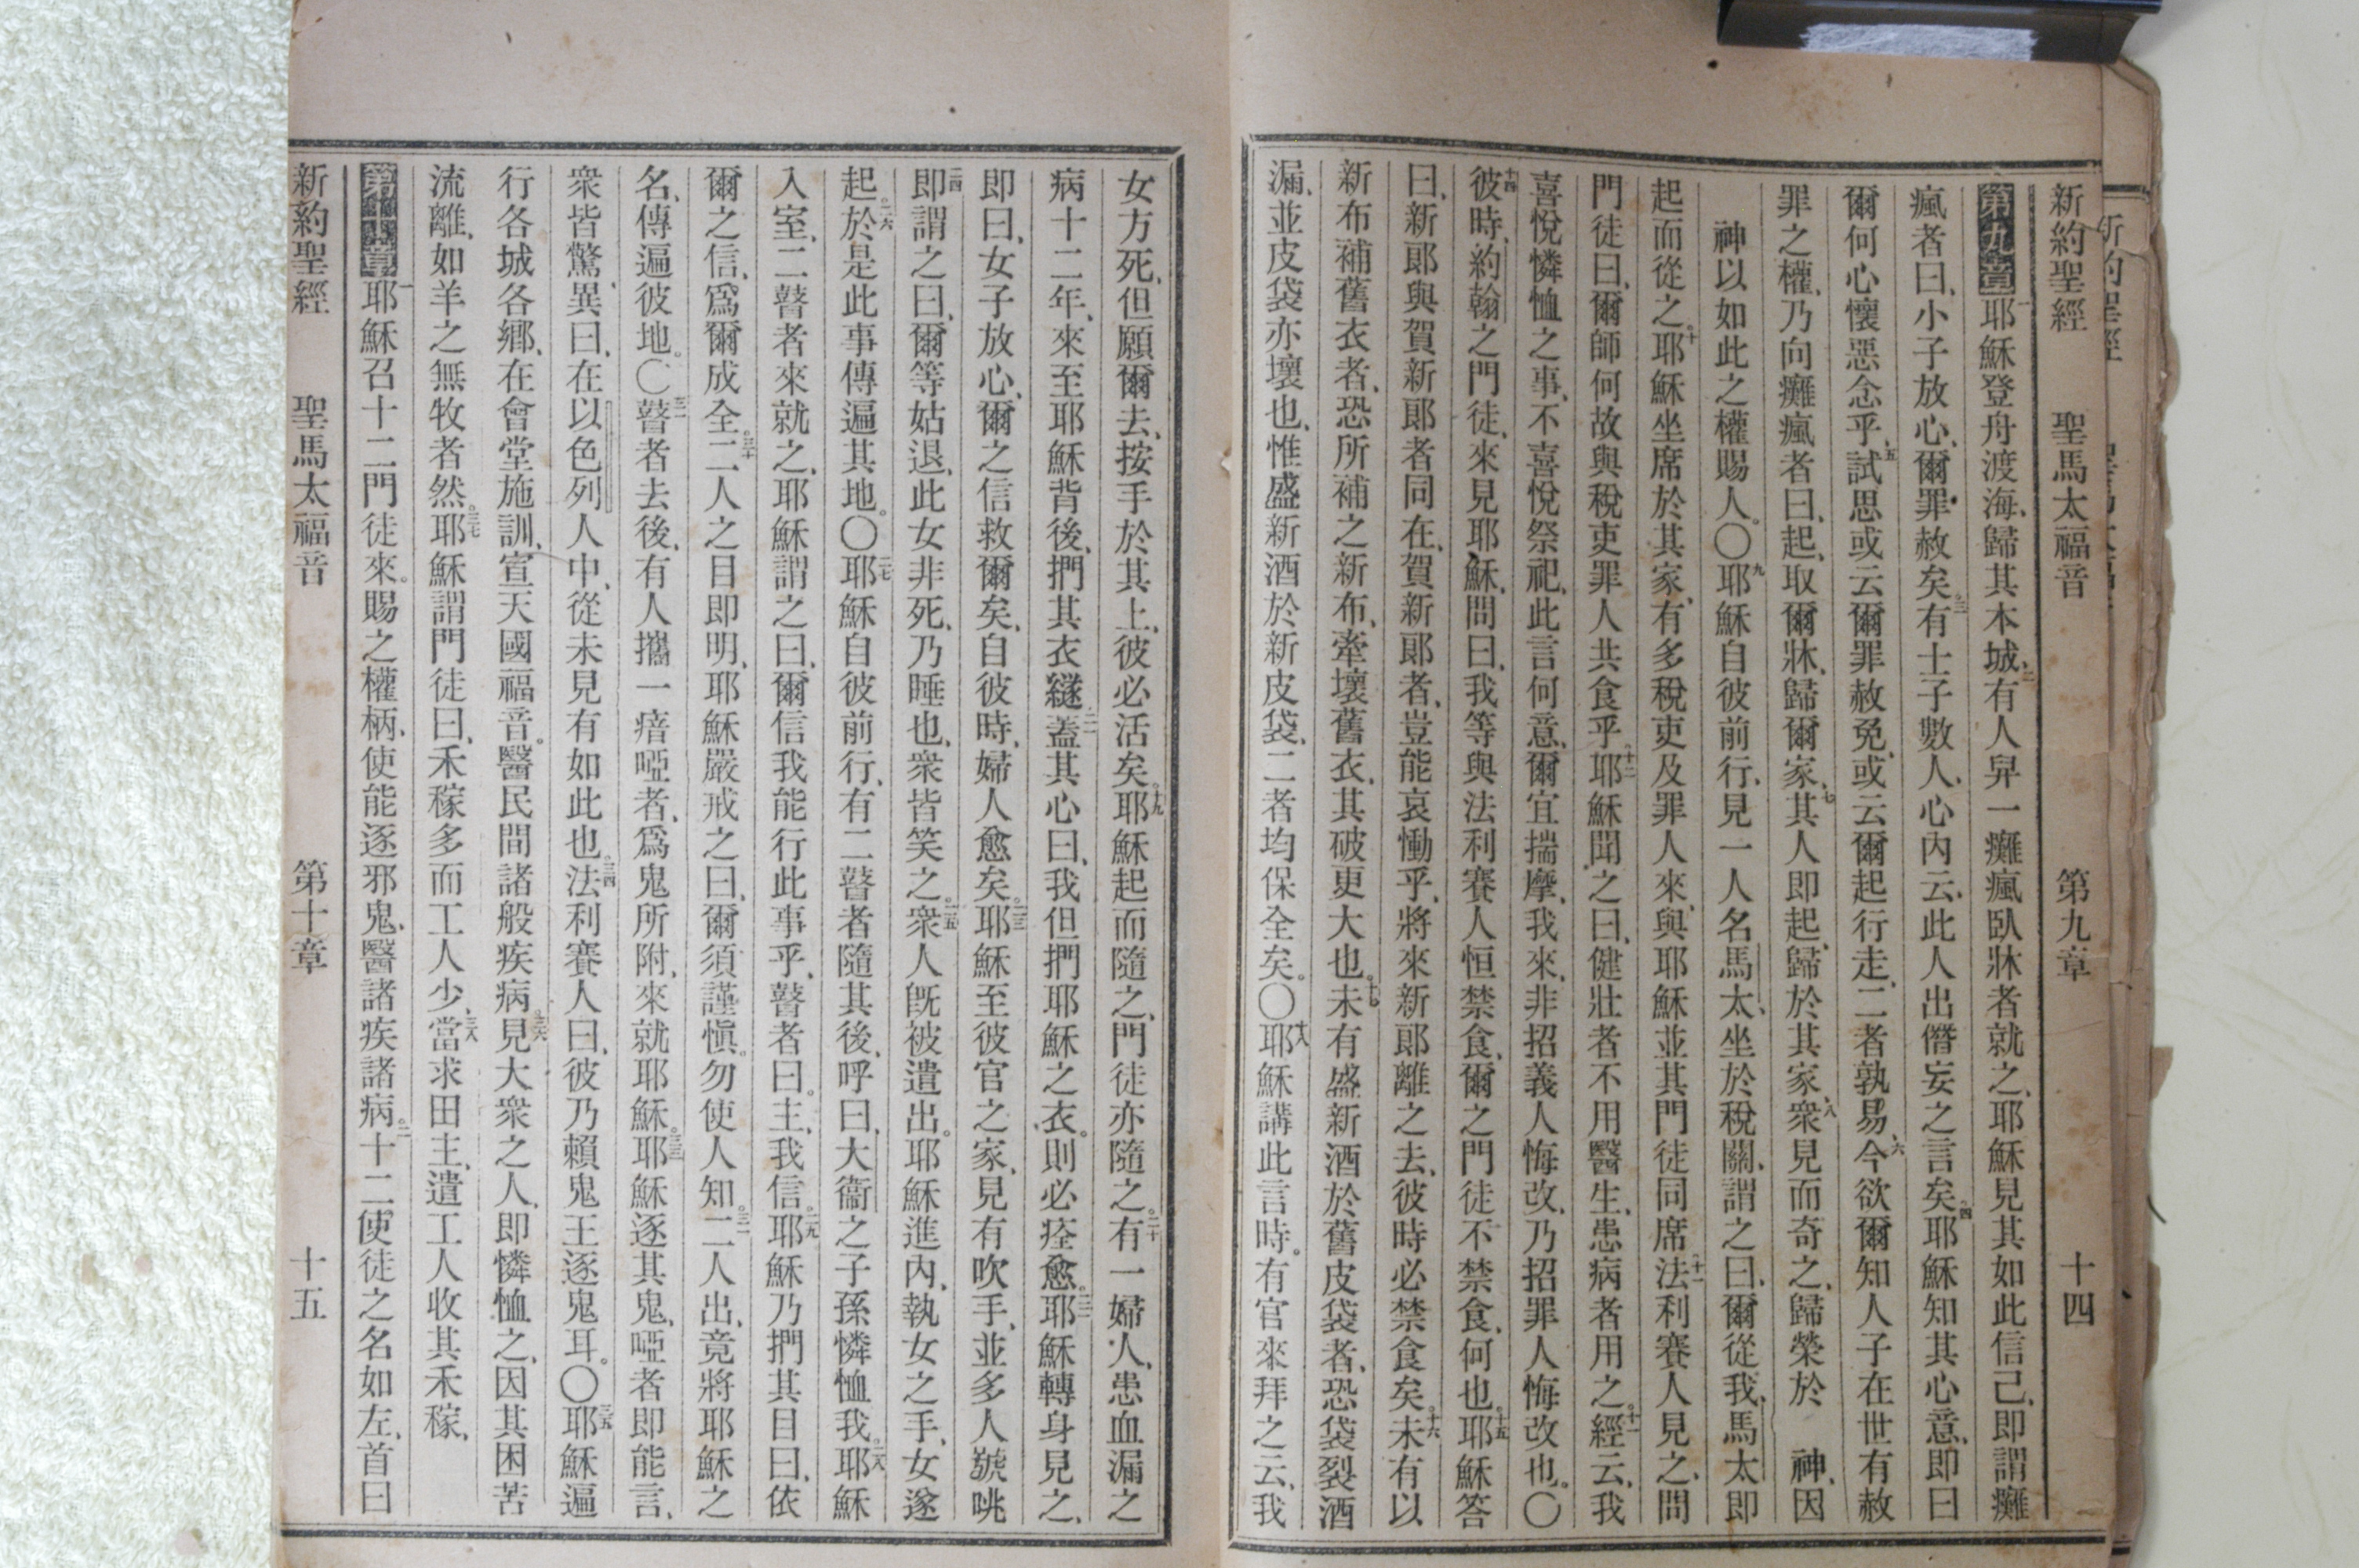 新約聖經 聖馬太福音 第九章 十四
第九章 一耶穌登舟渡海、歸其本城、二有人舁一癱瘋臥牀者就之、耶穌見其如此信己、即謂癱
瘋者曰、小子放心、爾罪赦矣。三有士子數人、心內云、此人出僭妄之言矣。四耶穌知其心意、即曰
爾何心懷惡念乎、五試思或云爾罪赦免、或云爾起行走、二者孰易、六今欲爾知人子在世有赦
罪之權、乃向癱瘋者曰、起、取爾牀、歸爾家、七其人即起、歸於其家、八衆見而奇之、歸榮於 神、因
神以如此之權賜人。〇九耶穌自彼前行、見一人名馬太、坐於稅關、謂之曰、爾從我、馬太即
起而從之。十耶穌坐席於其家、有多稅吏及罪人來、與耶穌並其門徒同席。十一法利賽人見之、問
門徒曰、爾師何故與稅吏罪人共食乎。十二耶穌聞之曰、健壯者不用醫生、患病者用之。經云、我
喜悅憐恤之事、不喜悅祭祀、此言何意、爾宜揣摩、我來、非招義人悔改、乃招罪人悔改也。〇
十四彼時、約翰之門徒、來見耶穌、問曰、我等與法利賽人恒禁食、爾之門徒不禁食、何也。十五耶穌答
曰、新郎與賀新郎者同在、賀新郎者、豈能哀慟乎、將來新郎離之去、彼時必禁食矣。十六未有以
新布補舊衣者、恐所補之新布、牽壞舊衣、其破更大也。十七未有盛新酒於舊皮袋者、恐袋裂酒
漏、並皮袋亦壞也、惟盛新酒於新皮袋、二者均保全矣。〇十八耶穌講此言時。有官來拜之云、我
女方死、但願爾去、按手於其上、彼必活矣。十九耶穌起而隨之、門徒亦隨之。二十有一婦人、患血漏之
病十二年、來至耶穌背後、捫其衣繸、二一蓋其心曰、我但捫耶穌之衣。則必痊愈。二二耶穌轉身見之、
即曰、女子放心、爾之信救爾矣、自彼時、婦人愈矣。二三耶穌至彼官之家、見有吹手、並多人號咷
二四即謂之曰、爾等姑退、此女非死、乃睡也、衆皆笑之。二五衆人旣被遣出。耶穌進內、執女之手、女遂
起。二六於是此事傳遍其地。〇二七耶穌自彼前行、有二瞽者隨其後、呼曰、大衞之子孫憐恤我。二八耶穌
入室、二瞽者來就之、耶穌謂之曰、爾信我能行此事乎、瞽者曰。主、我信。二九耶穌乃捫其目曰、依
爾之信、爲爾成全。三十二人之目即明、耶穌嚴戒之曰、爾須謹愼。勿使人知。三一二人出、竟將耶穌之
名、傳遍彼地。〇三二瞽者去後、有人攜一瘖啞者、爲鬼所附、來就耶穌。三三耶穌逐其鬼、啞者即能言、
衆皆驚異曰、在以色列人中、從未見有如此也。三四法利賽人曰、彼乃賴鬼王逐鬼耳。〇三五耶穌遍
行各城各鄉、在會堂施訓、宣天國福音。醫民間諸般疾病。三六見大衆之人、即憐恤之、因其困苦
流離、如羊之無牧者然。三七耶穌謂門徒曰、禾稼多而工人少、三八當求田主、遣工人收其禾稼、
第十章 一耶穌召十二門徒來。賜之權柄、使能逐邪鬼、醫諸疾諸病。二十二使徒之名如左、首曰
新約聖經 聖馬太福音 第十章 十五